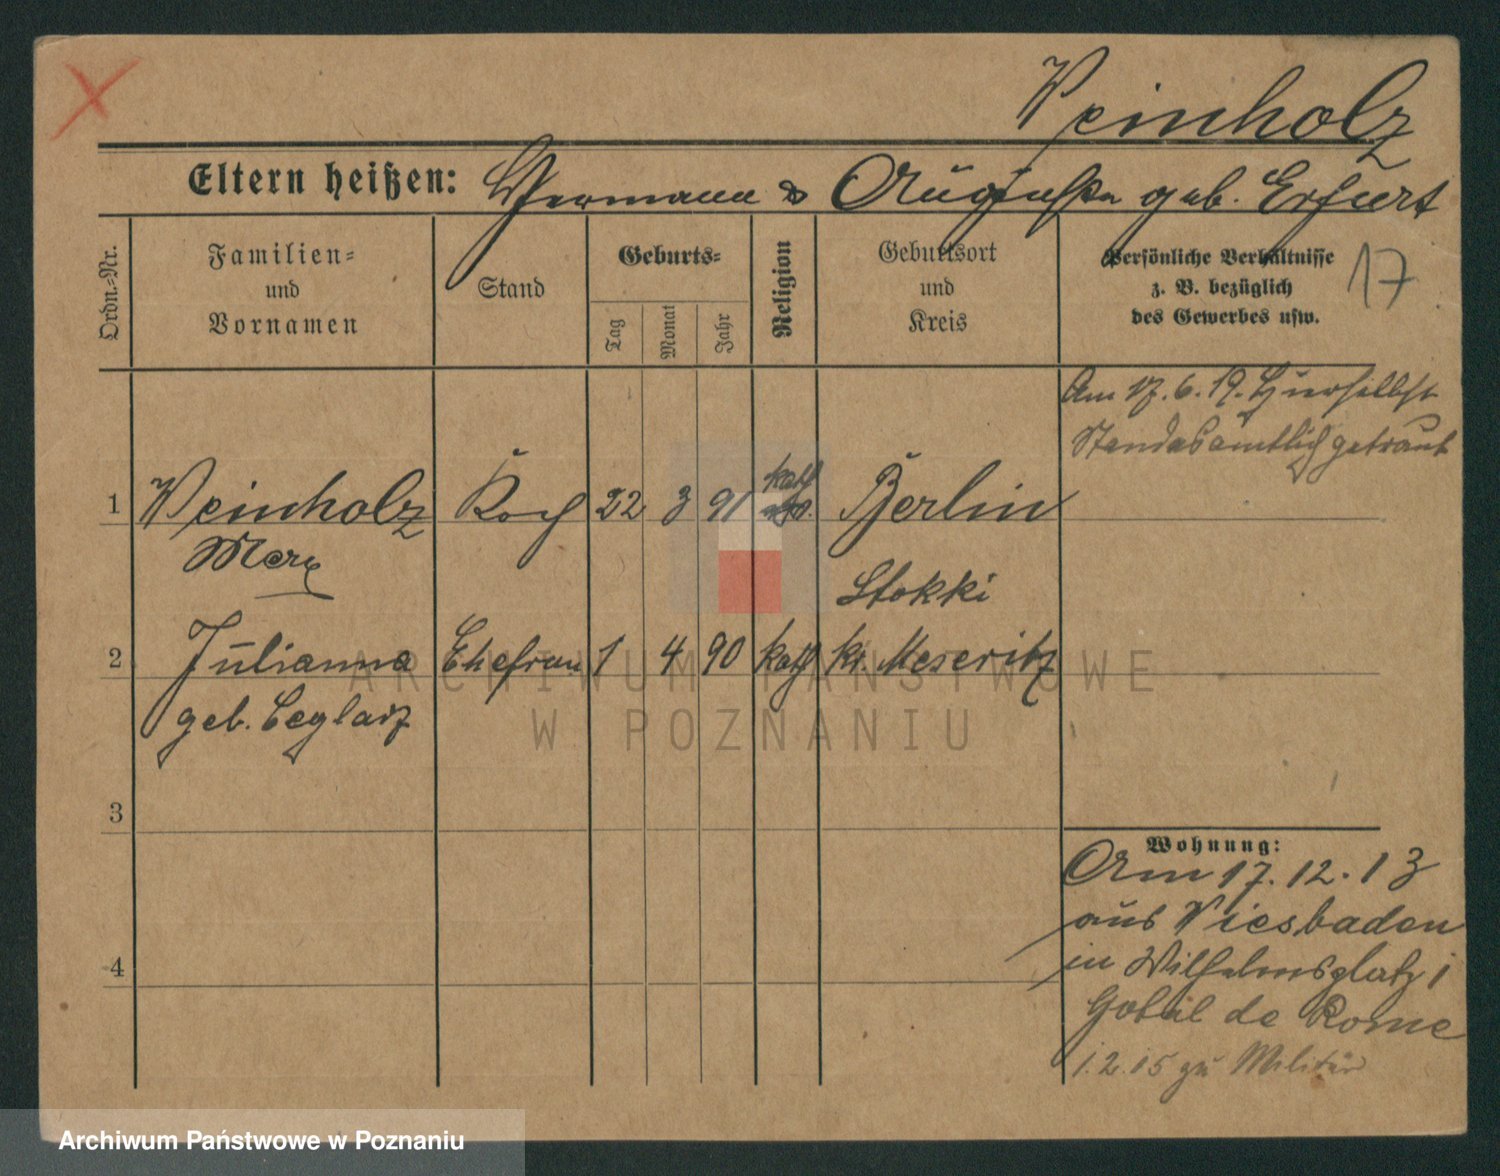 Weinholz
Eltern heißen: Hermann & Auguste geb. Erfurt
Ordn.-Nr.
Familien-
und
Vornamen
Stand
Geburts-
Tag
Monat
Jahr
Religion
Geburtsort
und
Kreis
Persönliche Verhältnisse
z. B. bezüglich
des Gewerbes usw.
17
Am 17.6.19. hierselbst
Standesamtlich getraut
kath
1 Weinholz Koch 22 3 91 Berlin
Max
Stokki
2 Julianna Ehefrau 1 4 90 kath Kr. Meseritz
geb. Ceglarz
3
4
Wohnung:
Am 17.12.13
aus Wiesbaden
in Wilhelmsplatz 1
Hotel de Rome
1.2.15 zu Militär
ARCHIWUM PAŃSTWOWE
W POZNANIU
Archiwum Państwowe w Poznaniu